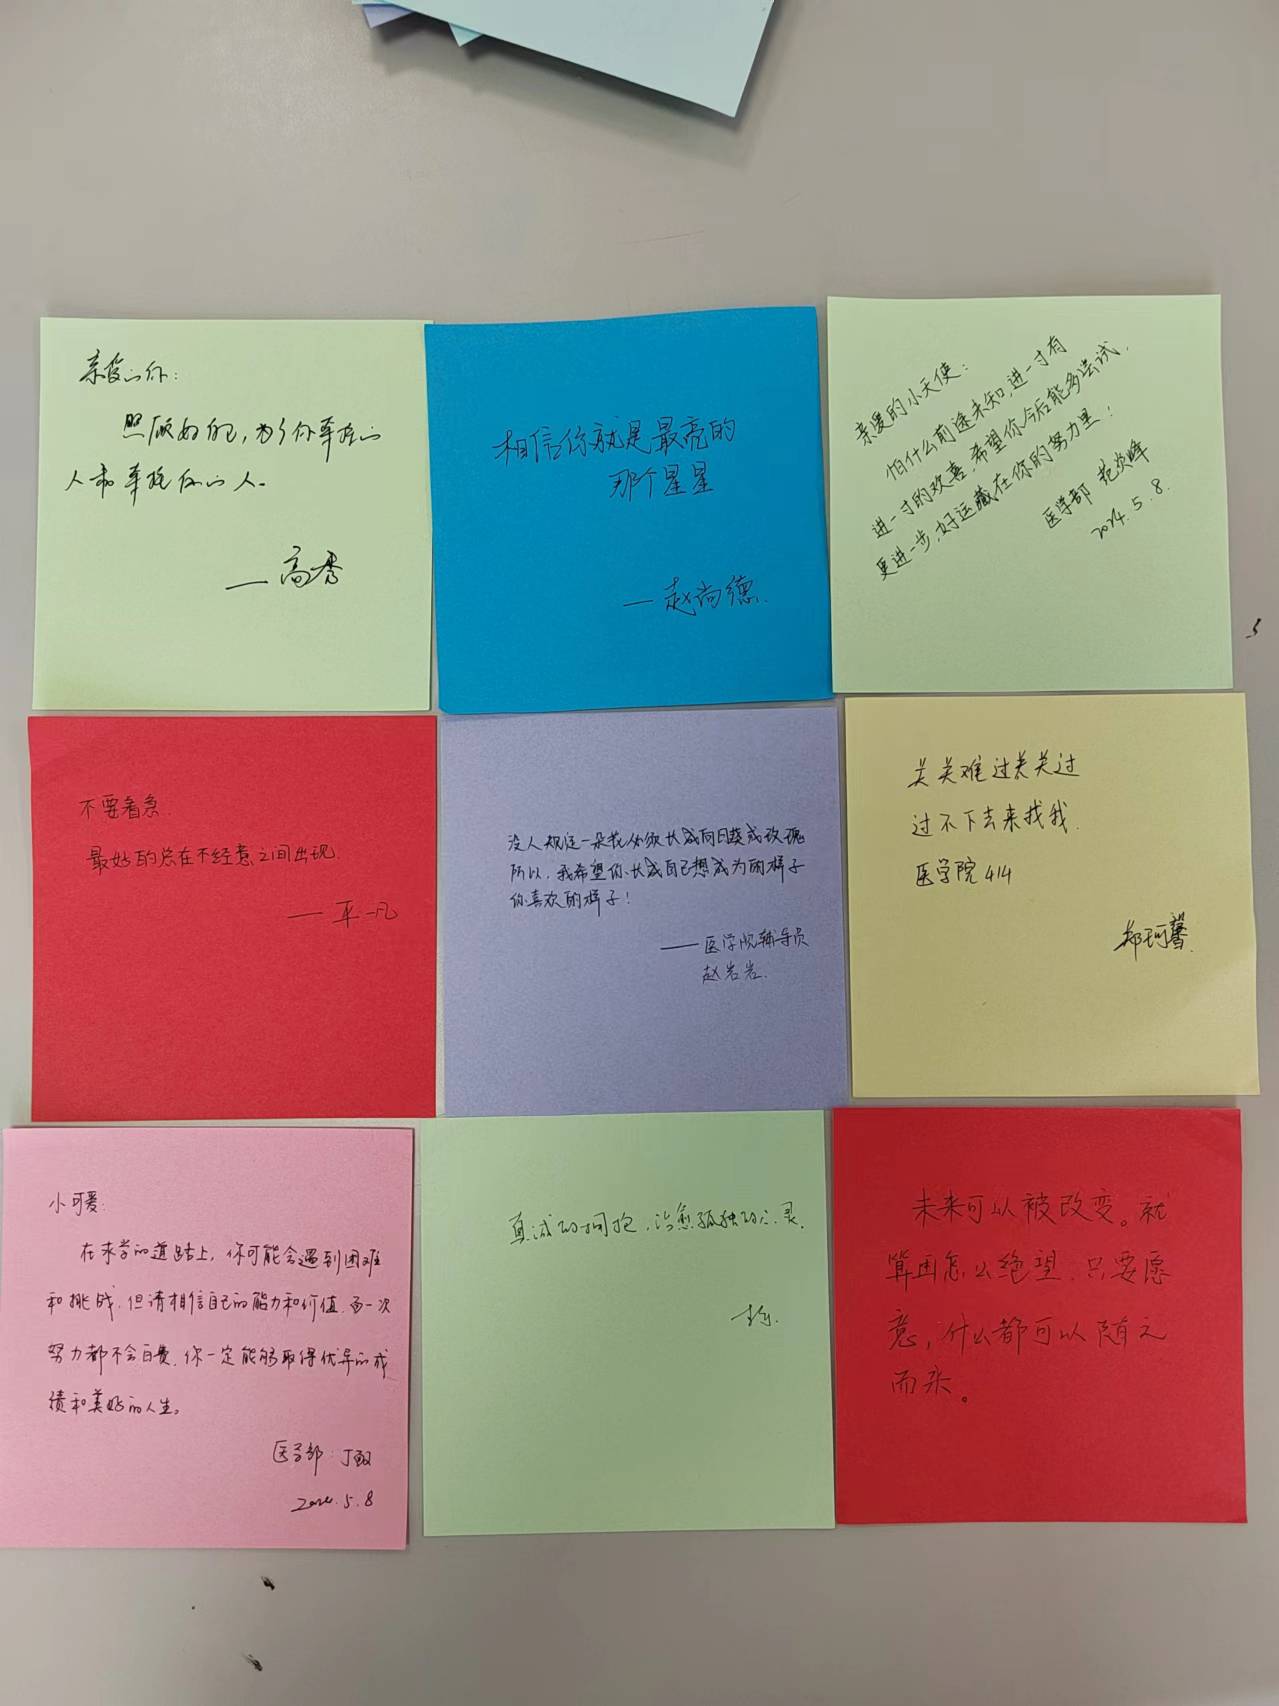 亲爱的你：
照顾好自己，为了你牵挂的
人和牵挂你的人。
——高秀
相信你就是最亮的
那个星星
——赵尚德.
亲爱的小天使：
怕什么前途未知,进一寸有
进一寸的欢喜,希望你今后能多尝试,
更进一步,好运藏在你的努力里！
医学部 范炎峰
2024.5.8.
不要着急.
最好的总在不经意之间出现.
——平凡
没人规定一朵花必须长成向日葵或玫瑰
所以，我希望你长成自己想成为的样子
你喜欢的样子！
——医学院辅导员
赵岩岩.
关关难过关关过
过不下去来找我.
医学院414
郑珂馨.
小可爱:
在求学的道路上，你可能会遇到困难
和挑战.但请相信自己的能力和价值.每一次
努力都不会白费.你一定能够取得优异的成
绩和美好的人生。
医学部：丁
2024.5.8
真诚的拥抱，治愈孤独的心灵.
未来可以被改变。就
算再怎么绝望.只要愿
意，什么都可以随之
而来。